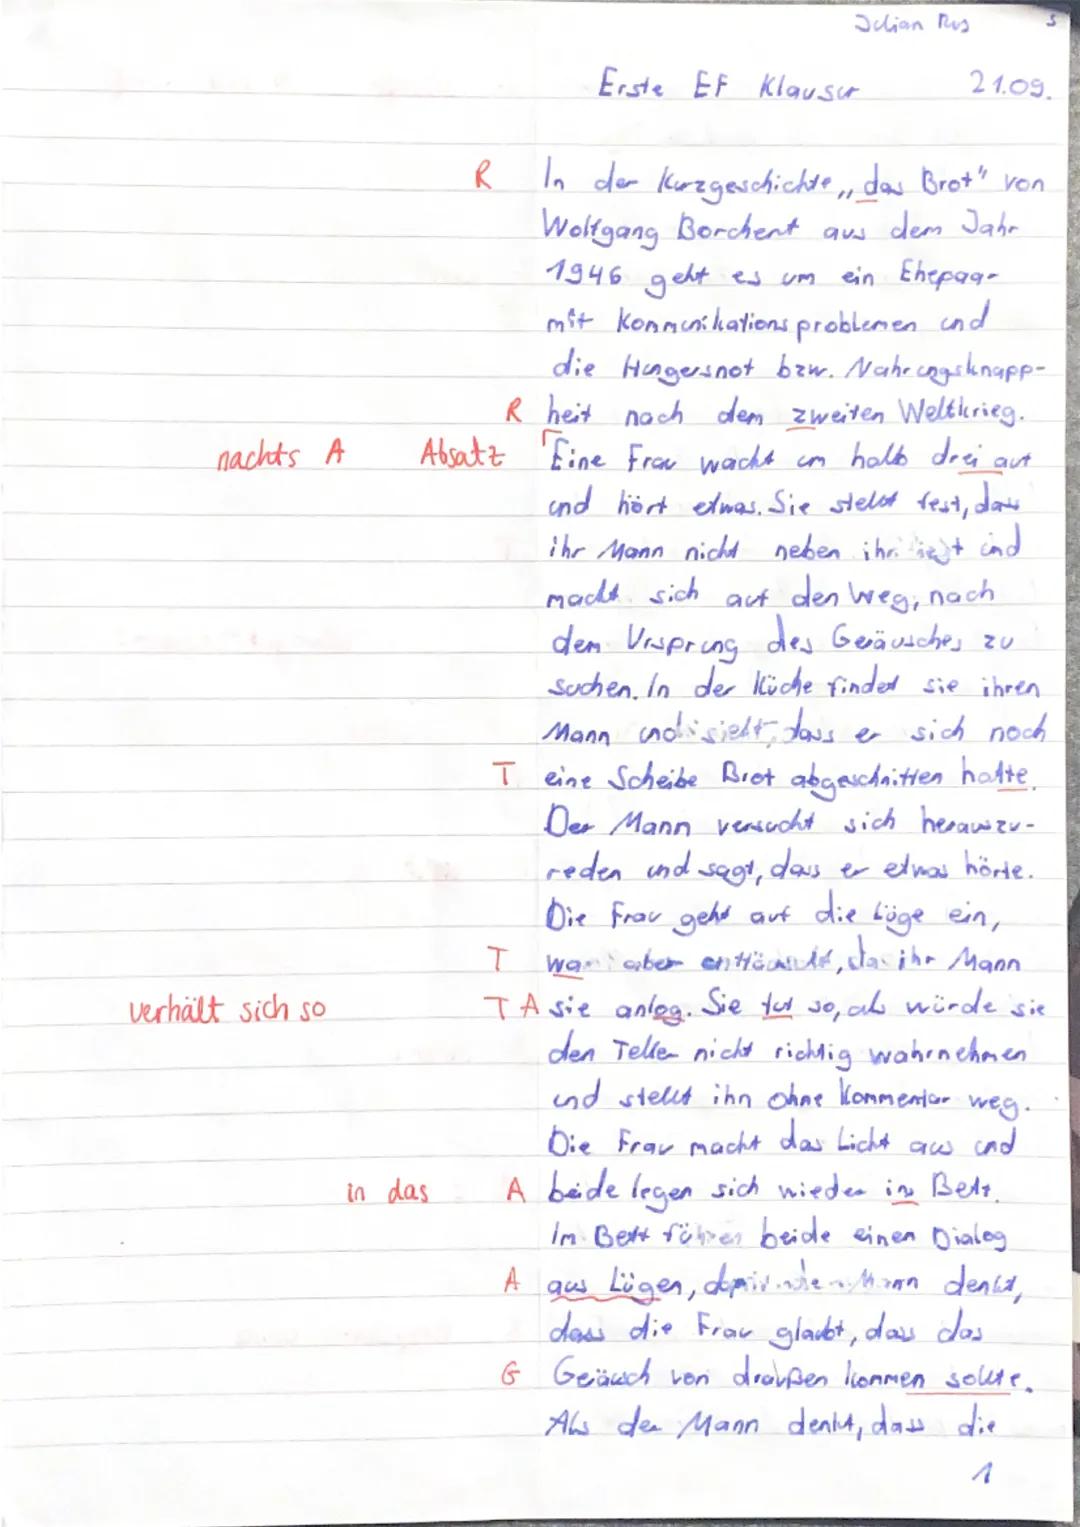 Julian Rus 5
Erste EF Klausur 21.09.
R In der Kurzgeschichte „das Brot" von
Wolfgang Borchert aus dem Jahr
1946 geht es um ein Ehepaar
mit Kommunikationsproblemen und
die Hungersnot bzw. Nahrungsknapp-
R heit nach dem zweiten Weltkrieg.
nachts A Absatz Eine Frau wacht um halb drei auf
und hört etwas. Sie stellt fest, dass
ihr Mann nicht neben ihr liegt und
macht sich auf den Weg, nach
dem Ursprung des Geräusches zu
suchen. In der Küche findet sie ihren
Mann und sieht, dass er sich noch
T eine Scheibe Brot abgeschnitten hatte.
Der Mann versucht sich herauszu-
reden und sagt, dass er etwas hörte.
Die Frau geht auf die Lüge ein,
T war aber enttäuscht, da ihr Mann
verhält sich so T A sie anlog. Sie tut so, als würde sie
den Teller nicht richtig wahrnehmen
und stellt ihn ohne Kommentar weg.
Die Frau macht das Licht aus und
in das A beide legen sich wieder ins Bett.
Im Bett führen beide einen Dialog
A aus Lügen, damit der Mann denkt,
dass die Frau glaubt, dass das
G Geräusch von draußen kommen sollte.
Als der Mann denkt, dass die
1